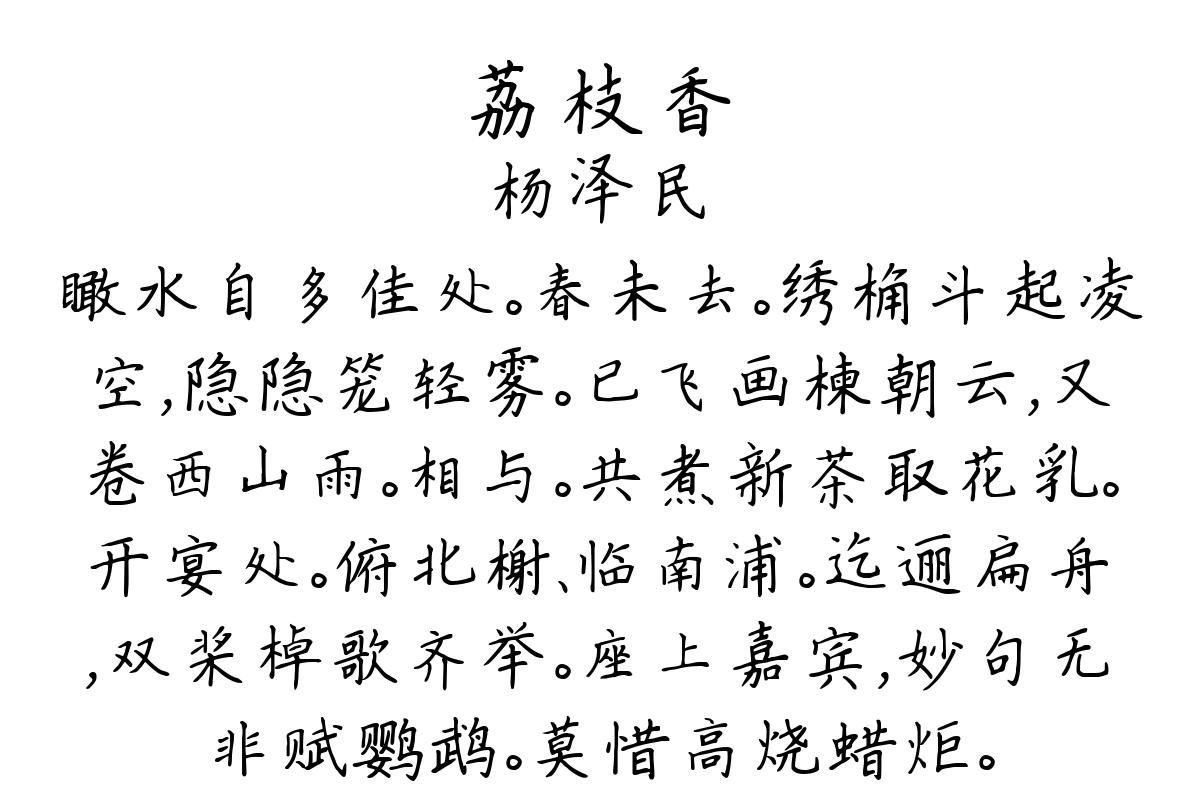 荔枝香
杨泽民
瞰水自多佳处。春未去。绣桷斗起凌
空,隐隐笼轻雾。已飞画楝朝云,又
卷西山雨。相与。共煮新茶取花乳。
开宴处。俯北榭、临南浦。迤逦扁舟
,双桨棹歌齐举。座上嘉宾,妙句无
非赋鹦鹉。莫惜高烧蜡炬。